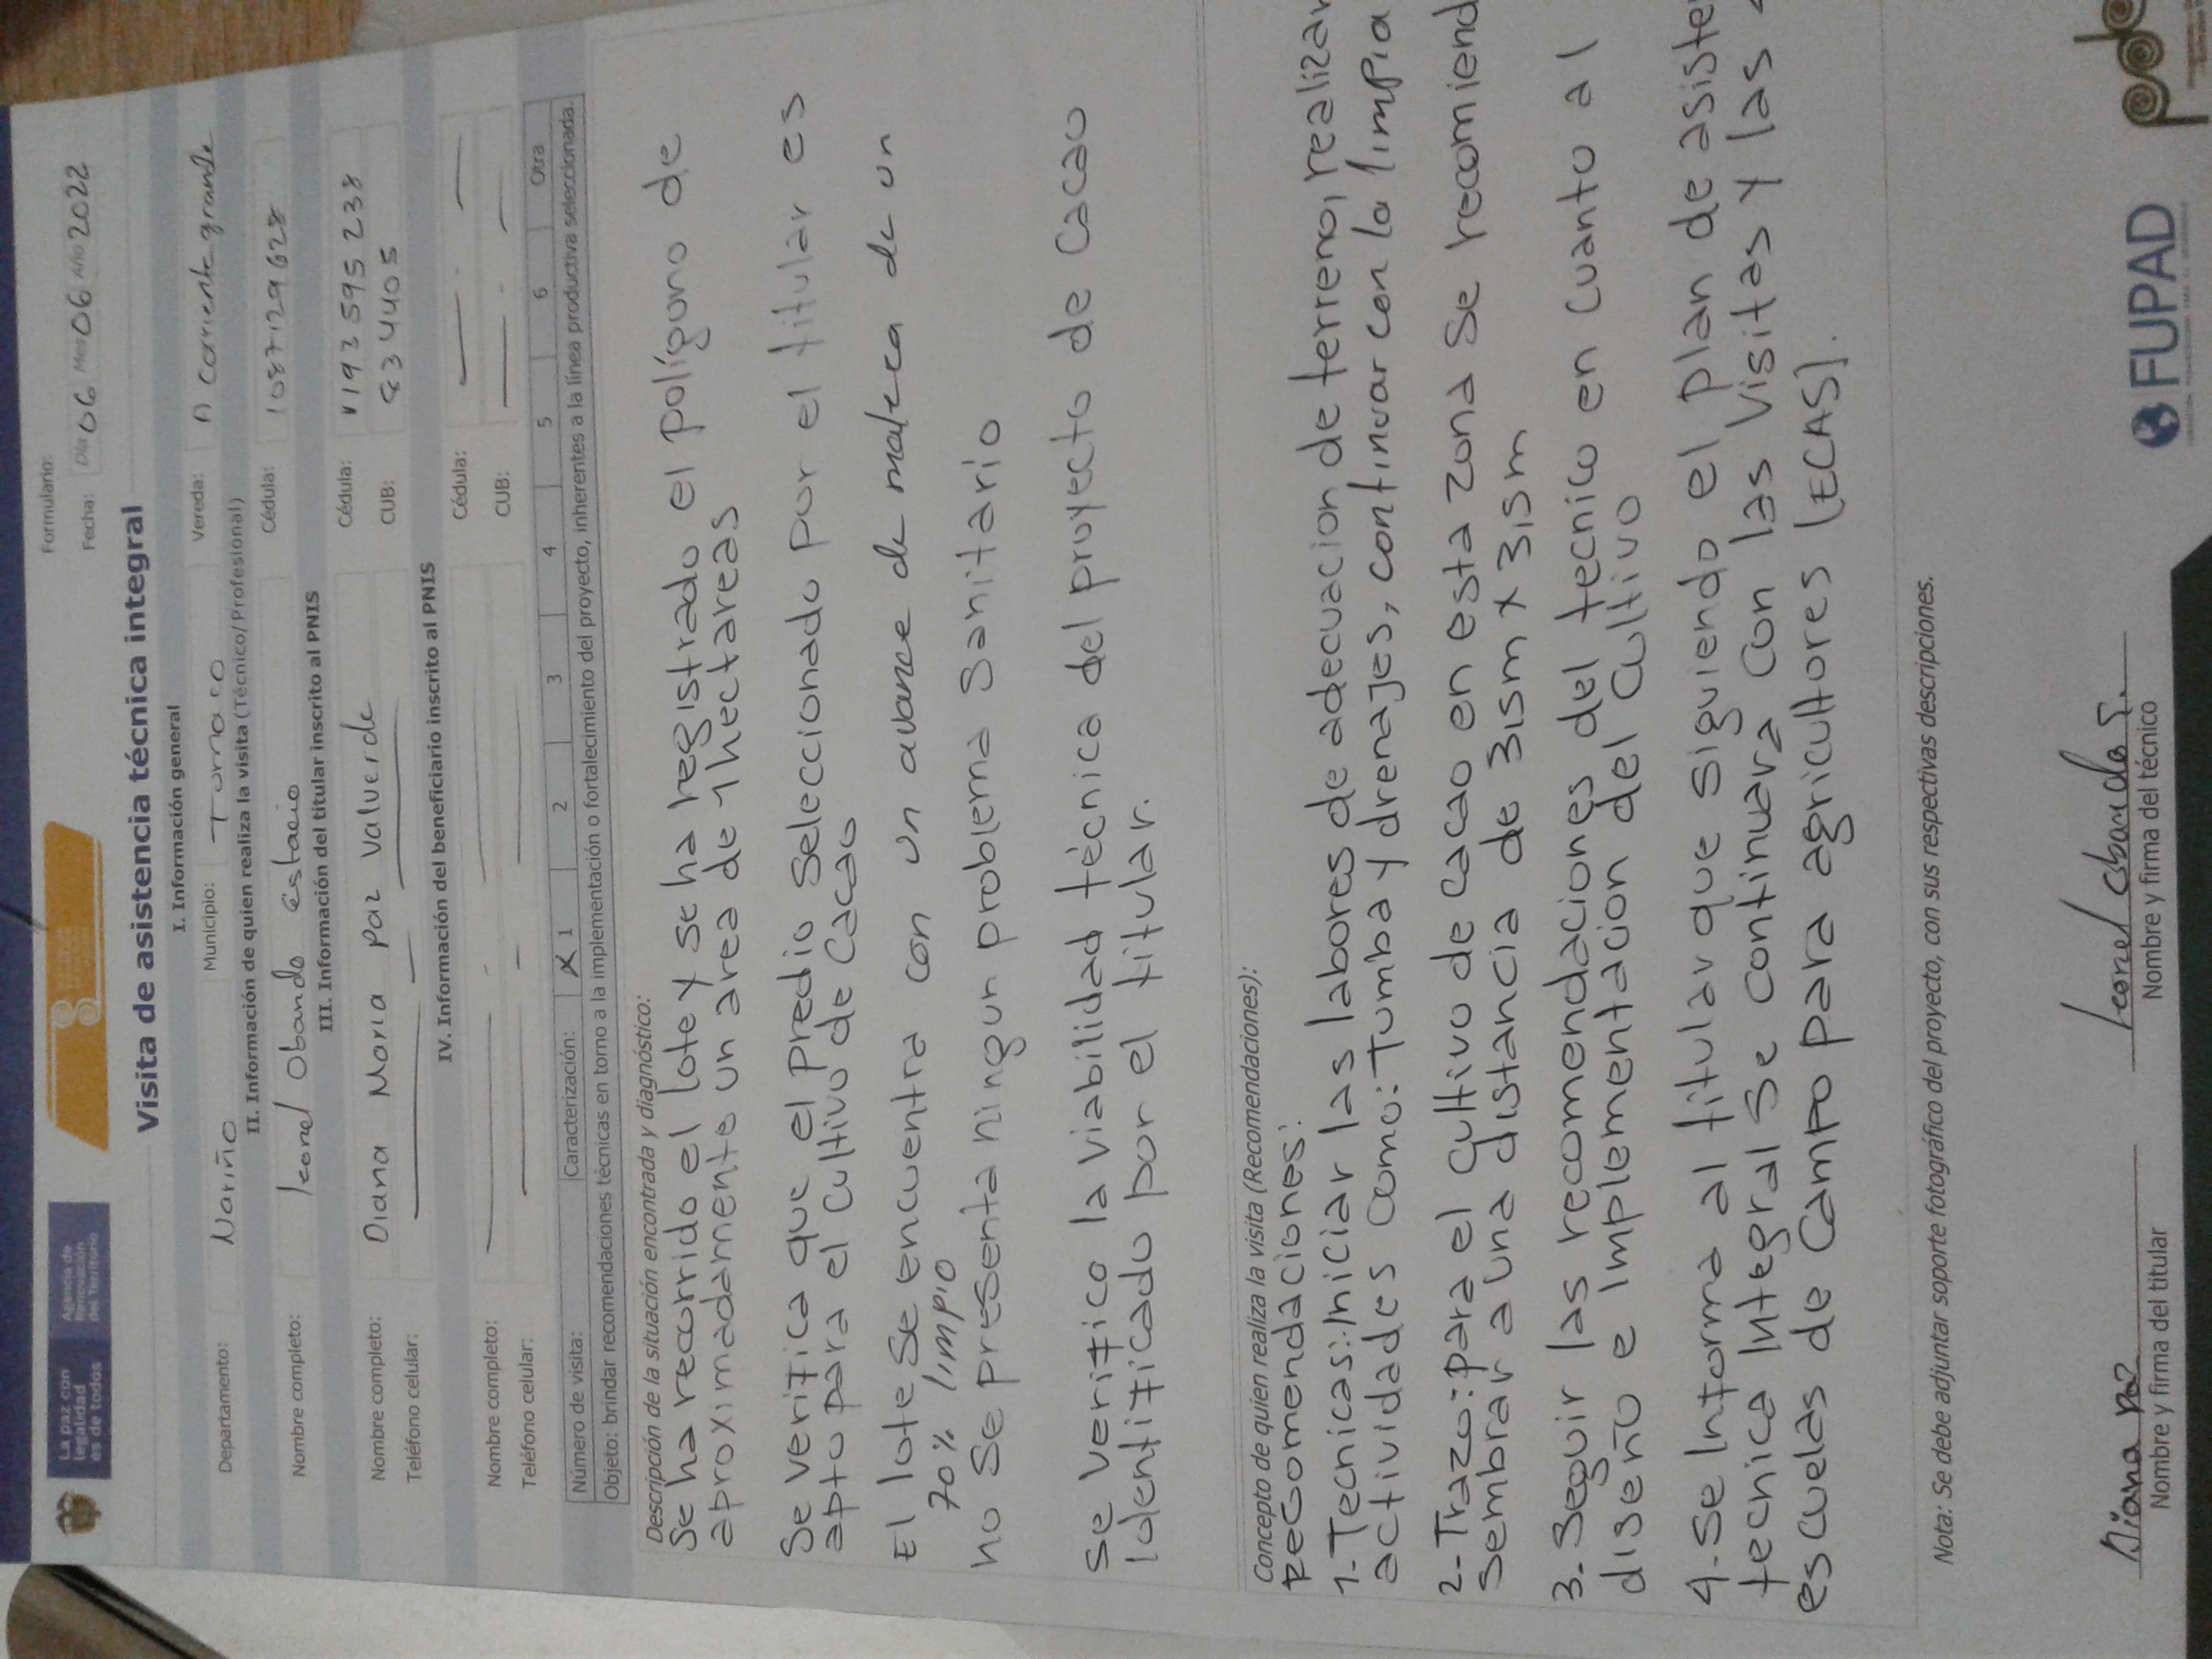 La paz con
legalidad
es de todos
Agencia de
Renovación
del Territorio
Formulario:
Fecha: Día 06 Mes 06 Año 2022
Visita de asistencia técnica integral
I. Información general
Departamento: Nariño Municipio: Tumaco Vereda: corriente grande
II. Información de quien realiza la visita (Técnico/Profesional)
Nombre completo: leonel Obando estacio Cédula: 1087129628
III. Información del titular inscrito al PNIS
Nombre completo: Diana Maria paz valverde Cédula: 1192595238
Teléfono celular: CUB: 634405
IV. Información del beneficiario inscrito al PNIS
Nombre completo: Cédula:
Teléfono celular: CUB:
Número de visita: Caracterización: X 1 2 3 4 5 6 Otra
Objeto: brindar recomendaciones técnicas en torno a la implementación o fortalecimiento del proyecto, inherentes a la línea productiva seleccionada.
Descripción de la situación encontrada y diagnóstico:
Se ha recorrido el lote y se ha registrado el polígono de
aproximadamente un area de 1hectareas
Se verifica que el predio seleccionado por el titular es
apto para el cultivo de cacao
El lote se encuentra con un avance de maleza de un
70% limpio
no se presenta ningun problema sanitario
se verifico la viabilidad técnica del proyecto de cacao
identificado por el titular.
Concepto de quien realiza la visita (Recomendaciones):
Recomendaciones:
1-Tecnicas:Iniciar las labores de adecuacion de terreno, realizar
actividades como: Tumba y drenajes, continuar con la limpia
2-Trazo: para el cultivo de cacao en esta zona se recomiend
sembrar a una distancia de 3.5m x 3.5m
3. Seguir las recomendaciones del tecnico en cuanto al
diseño e implementación del cultivo
4.-Se Informa al titular que siguiendo el plan de asiste
tecnica Integral se continuara con las visitas y las
escuelas de campo para agricultores (ECAS).
Nota: Se debe adjuntar soporte fotográfico del proyecto, con sus respectivas descripciones.
Diana paz
Nombre y firma del titular
Leonel Obando E.
Nombre y firma del técnico
FUPAD